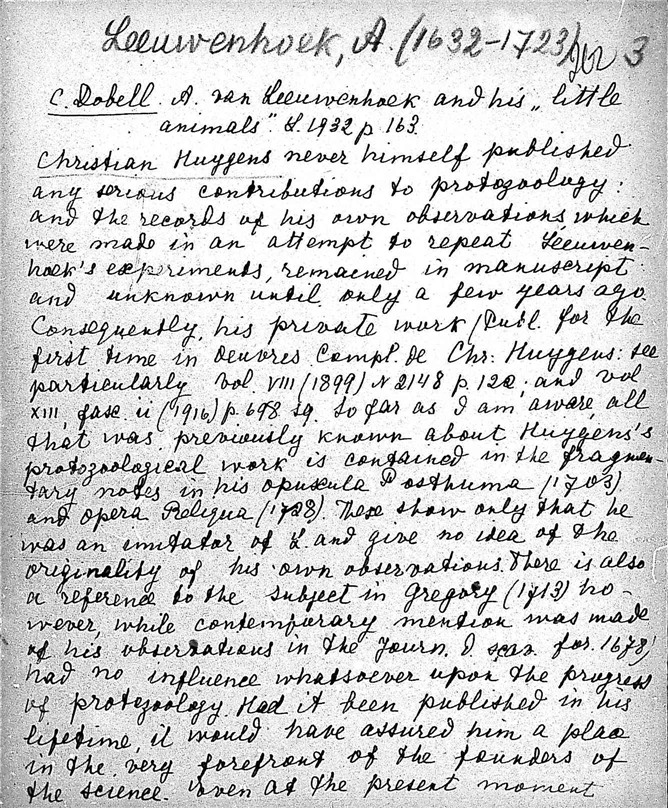 Leeuwenhoek, A. (1632-1723) 3
C. Dobell. A. van Leeuwenhoek and his „little
animals". L. 1932 p 163.
Christian Huygens never himself published
any serious contributions to protozoology:
and the records of his own observations, which
were made in an attempt to repeat Leeuwen-
hoek's experiments, remained in manuscript
and unknown until only a few years ago.
Consequently, his private work (Publ. for the
first time in Oeuvres Compl. de Chr. Huygens: see
particularly Vol. VIII (1899) N 2148 p. 122; and vol
XIII, fasc. ii (1916) p. 698 sq. So far as I am aware, all
that was previously known about Huygens's
protozoological work is contained in the fragmen-
tary notes in his opuscula Posthuma (1703)
and opera Reliqua (1728). These show only that he
was an imitator of L. and give no idea of the
originality of his own observations. There is also
a reference to the subject in Gregory (1713) ho-
wever, while contemporary mention was made
of his observations in the Journ. d. for 1678)
had no influence whatsoever upon the progress
of protozoology. Had it been published in his
lifetime, it would have assured him a place
in the very forefront of the founders of
the science. Even at the present moment